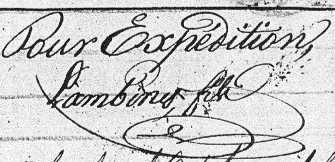 Pour Expédition,
Lambinet fils